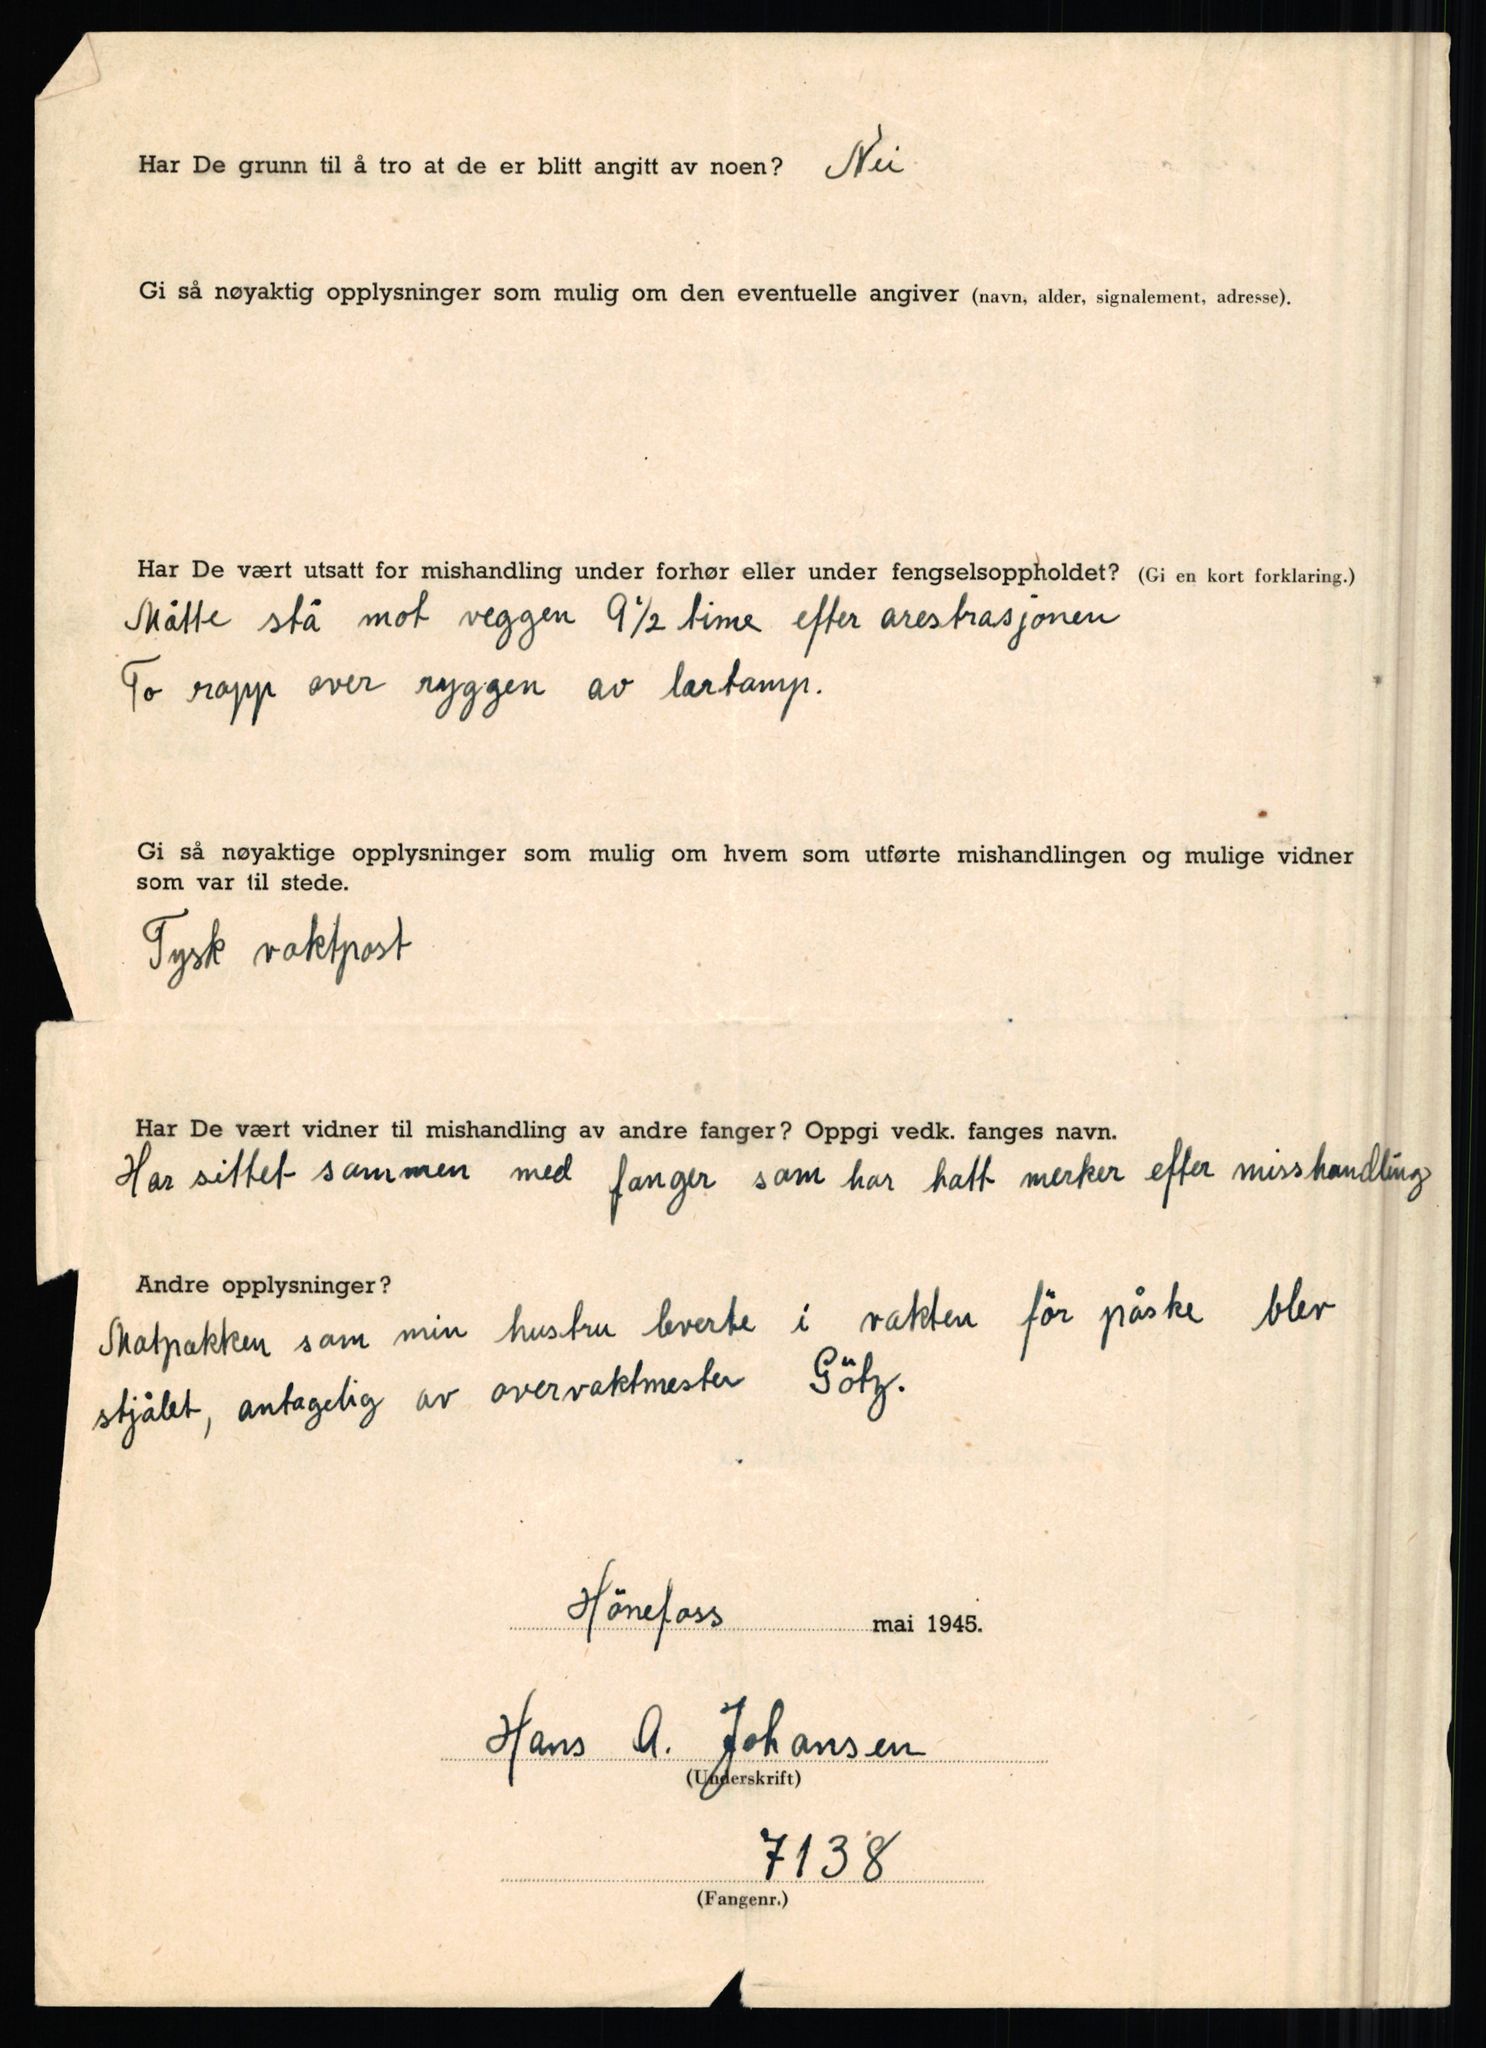 Har De grunn til å tro at de er blitt angitt av noen? Nei
Gi så nøyaktig opplysninger som mulig om den eventuelle angiver (navn, alder, signalement, adresse).
Har De vært utsatt for mishandling under forhør eller under fengselsoppholdet? (Gi en kort forklaring.)
Måtte stå mot veggen 9½ time efter arestrasjonen
To rapp over ryggen av lærtamp.
Gi så nøyaktige opplysninger som mulig om hvem som utførte mishandlingen og mulige vidner
som var til stede.
Tysk vaktpost
Har De vært vidner til mishandling av andre fanger? Oppgi vedk. fanges navn.
Har sittet sammen med fanger som har hatt merker efter misshandling
Andre opplysninger?
Matpakken som min hustru leverte i vakten för påske blev
stjålet, antagelig av overvaktmester Götz.
Hönefoss mai 1945.
Hans A. Johansen
(Underskrift)
7138
(Fangenr.)